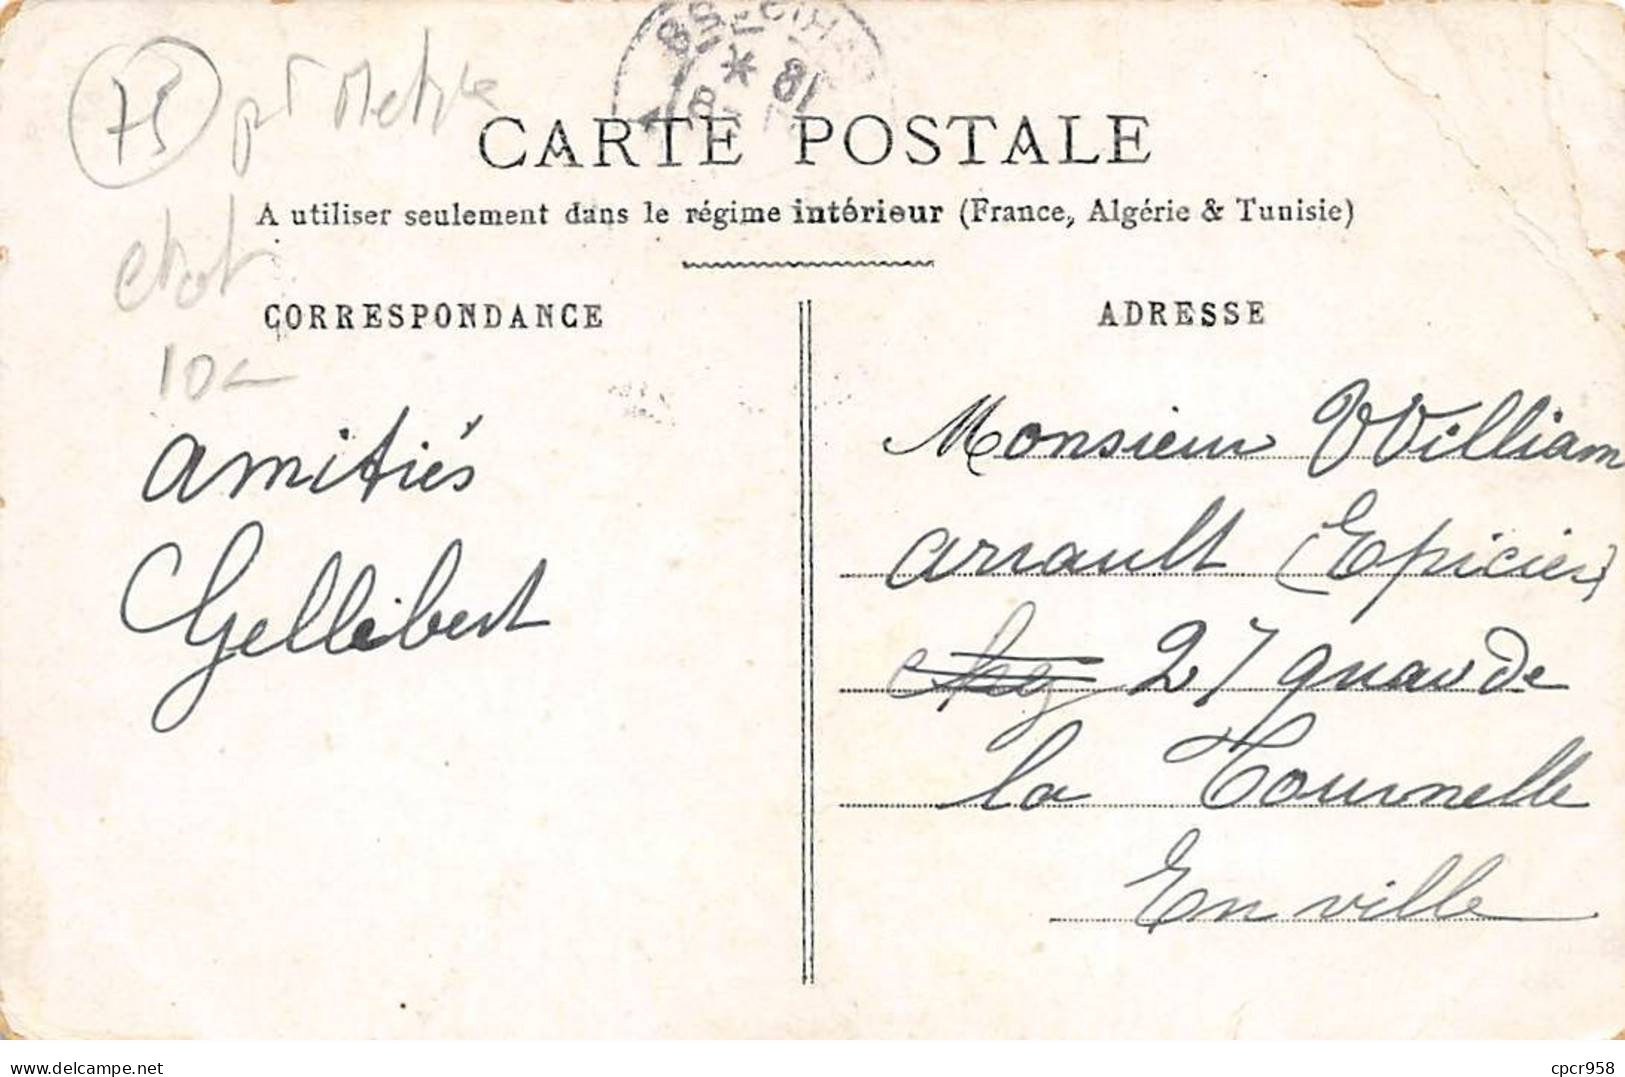 75
CARTE POSTALE
A utiliser seulement dans le régime intérieur (France, Algérie & Tunisie)
CORRESPONDANCE
ADRESSE
10
amitiés
Gellibert
Monsieur William
arrault (Epicier)
chez 27 quai de
la Tournelle
En ville
delcampe.net
cpcr958